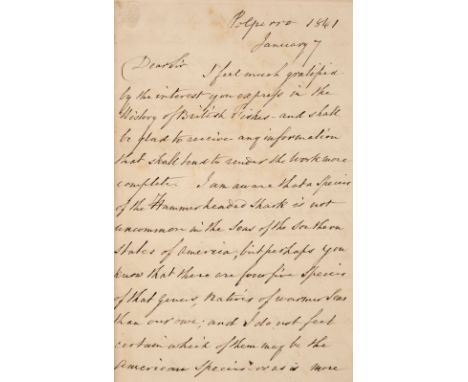 Polperro 1841
January 7
Dear Sir I feel much gratified
by the interest you express in the
History of British Fishes - and shall
be glad to receive any information
that shall tend to render the work more
complete. I am aware that a Species
of the Hammerheaded Shark is not
uncommon in the Seas of the Southern
States of America, but perhaps you
know that there are four five Species
of that Genus, Natives of warmer Seas
than our own; and I do not feel
certain which of them may be the
American Species or as is more